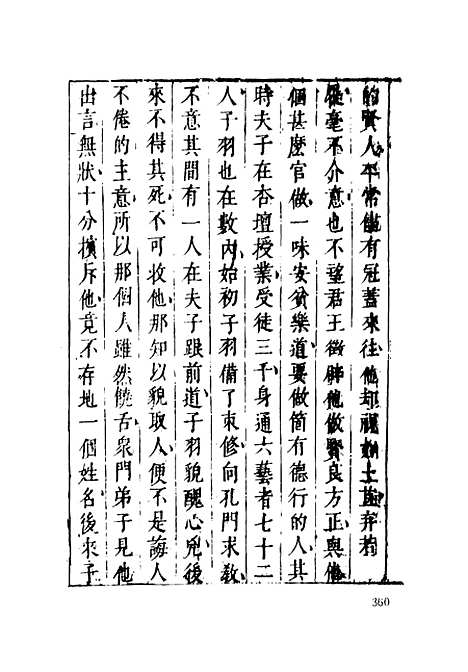 的賢人平常雖有冠蓋來往他却視如土苴弃若
屣毫不介意也不望君王徵辟他做賢良方正與他
個甚麽官做一味安貧樂道要做箇有德行的人其
時夫子在杏壇授業受徒三千身通六藝者七十二
人子羽也在數內始初子羽備了束修向孔門求教
不意其間有一人在夫子跟前道子羽貌醜心兇後
來不得其死不可收他那知以貌取人便不是誨人
不倦的主意所以那個人雖然饒舌衆門弟子見他
出言無狀十分擯斥他竟不存地一個姓名後來子
360